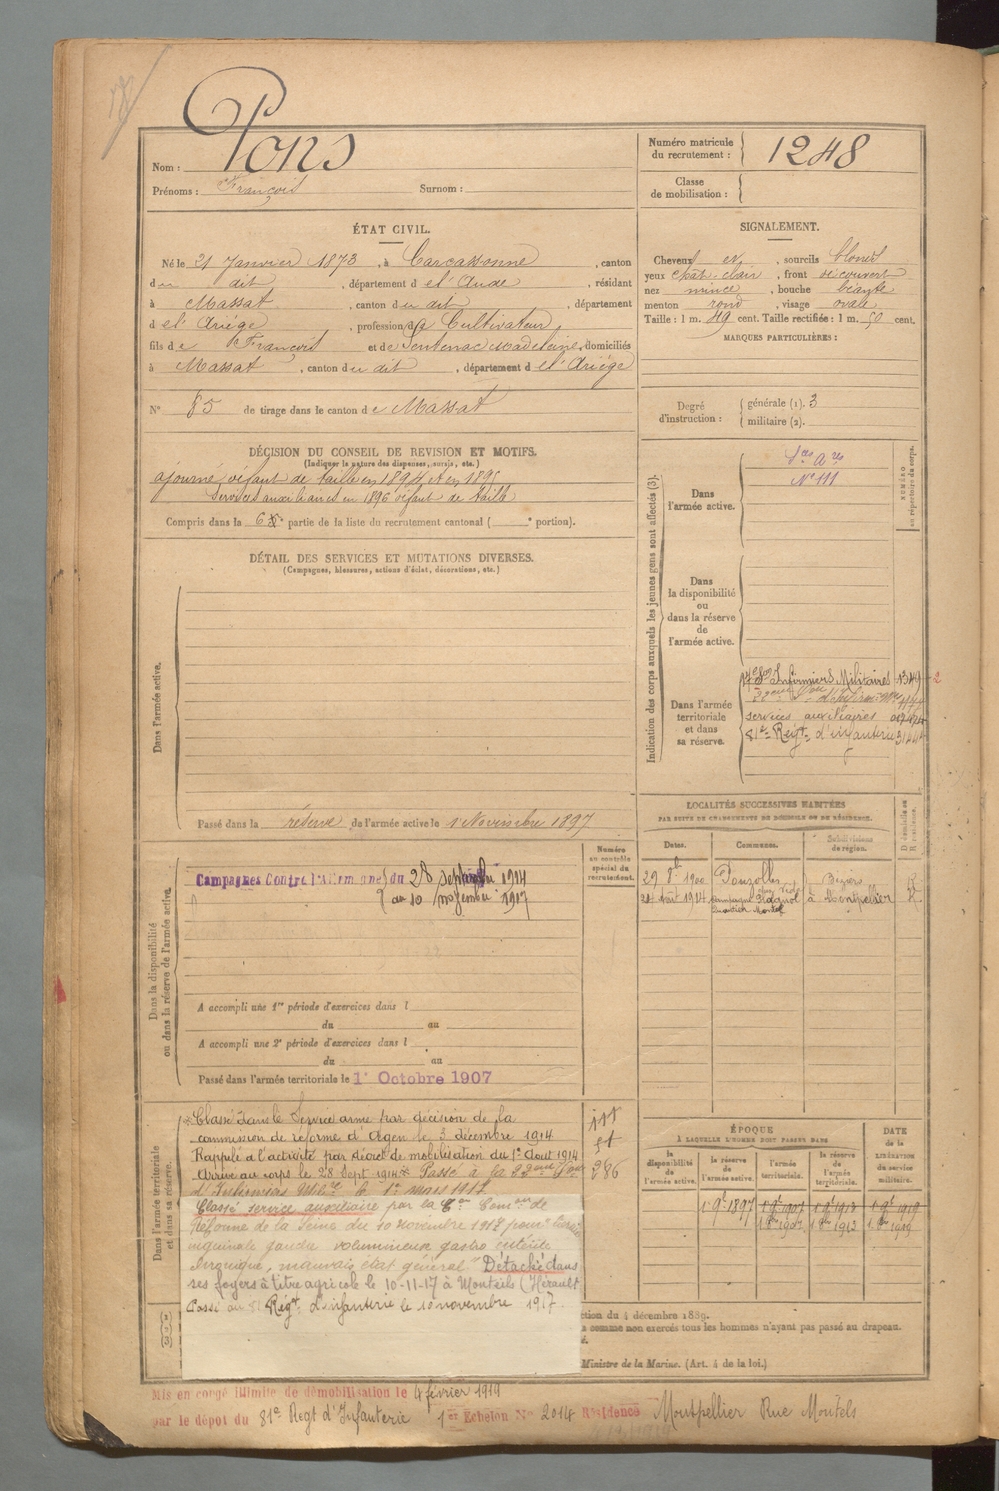 Pons
Nom :
Prénoms : François Surnom :
Numéro matricule
du recrutement : 1248
Classe
de mobilisation :
ÉTAT CIVIL.
Né le 21 Janvier 1873, à Carcassonne, canton
du dit, département de l'Aude, résidant
à Massat, canton du dit, département
de l'Ariège, profession de Cultivateur,
fils de François et de Sentenac Madeleine, domiciliés
à Massat, canton du dit, département de l'Ariège
N° 85 de tirage dans le canton de Massat
SIGNALEMENT.
Cheveux et, sourcils blonds
yeux chât. clair, front découvert
nez mince, bouche béante
menton rond, visage ovale
Taille : 1 m. 49 cent. Taille rectifiée : 1 m. 50 cent.
MARQUES PARTICULIÈRES :
Degré
d'instruction :
générale (1). 3
militaire (2).
DÉCISION DU CONSEIL DE REVISION ET MOTIFS.
(Indiquer la nature des dispenses, sursis, etc.)
ajourné défaut de taille en 1894 et en 1895
Services auxiliaires en 1896 défaut de taille
Compris dans la 6e partie de la liste du recrutement cantonal ( e portion).
DÉTAIL DES SERVICES ET MUTATIONS DIVERSES.
(Campagnes, blessures, actions d'éclat, décorations, etc.)
Dans l'armée active.
Passé dans la réserve de l'armée active le 1 Novembre 1897
Indication des corps auxquels les jeunes gens sont affectés (3).
NUMÉRO
au répertoire du corps.
Dans
l'armée active.
Sces Ares
N° 111
Dans
la disponibilité
ou
dans la réserve
de
l'armée active.
Dans l'armée
territoriale
et dans
sa réserve.
17e Son Infirmiers Militaires
services auxiliaires
81e Régt d'infanterie
LOCALITÉS SUCCESSIVES HABITÉES
PAR SUITE DE CHANGEMENTS DE DOMICILE OU DE RÉSIDENCE.
Dates.
Communes.
Subdivisions
de région.
Domicile ou
Résidence.
29 8bre 1900 Pouzolles Béziers
24 Août 1914 à Montpellier
Dans la disponibilité
ou dans la réserve de l'armée active.
Numéro
au contrôle
spécial du
recrutement.
Campagnes Contre l'Allemagne du 28 septembre 1914
au 10 novembre 1917
A accompli une 1re période d'exercices dans l
du au
A accompli une 2e période d'exercices dans l
du au
Passé dans l'armée territoriale le 1er Octobre 1907
Dans l'armée territoriale
et dans sa réserve.
Classé dans le Service armé par décision de la
commission de réforme d'Agen le 3 décembre 1914
Rappelé à l'activité par décret de mobilisation du 1er Aout 1914
Arrivé au corps le 28 Sept 1914 Passé à la 22eme Son
d'Infirmiers Milit. le 1er mars 1917
Classé service auxiliaire par la Com on de
Réforme de la Seine du 10 novembre 1917 pour
inguinale gauche volumineuse gastro entérite
chronique, mauvais état général" Détaché dans
ses foyers à titre agricole le 10-11-17 à Montels (Hérault
Passé au 81 Régt d'infanterie le 10 novembre 1917.
286
ÉPOQUE
À LAQUELLE L'HOMME DOIT PASSER DANS
DATE
de la
LIBÉRATION
du service
militaire.
la
disponibilité
de l'armée
active.
la réserve
de
l'armée active.
l'armée
territoriale.
la réserve
de
l'armée
territoriale.
1 9bre 1897 1 9bre 1907 1 9bre 1913 1 9bre 1919
1 8bre 1907 1 8bre 1913 1 8bre 1919
ction du 4 décembre 1889.
s comme non exercés tous les hommes n'ayant pas passé au drapeau.
Ministre de la Marine. (Art. 4 de la loi.)
Mis en congé illimité de démobilisation le 4 février 1919
par le dépot du 81e Regt d'Infanterie 1er Echelon N° 2014 Résidence Montpellier Rue Moutels